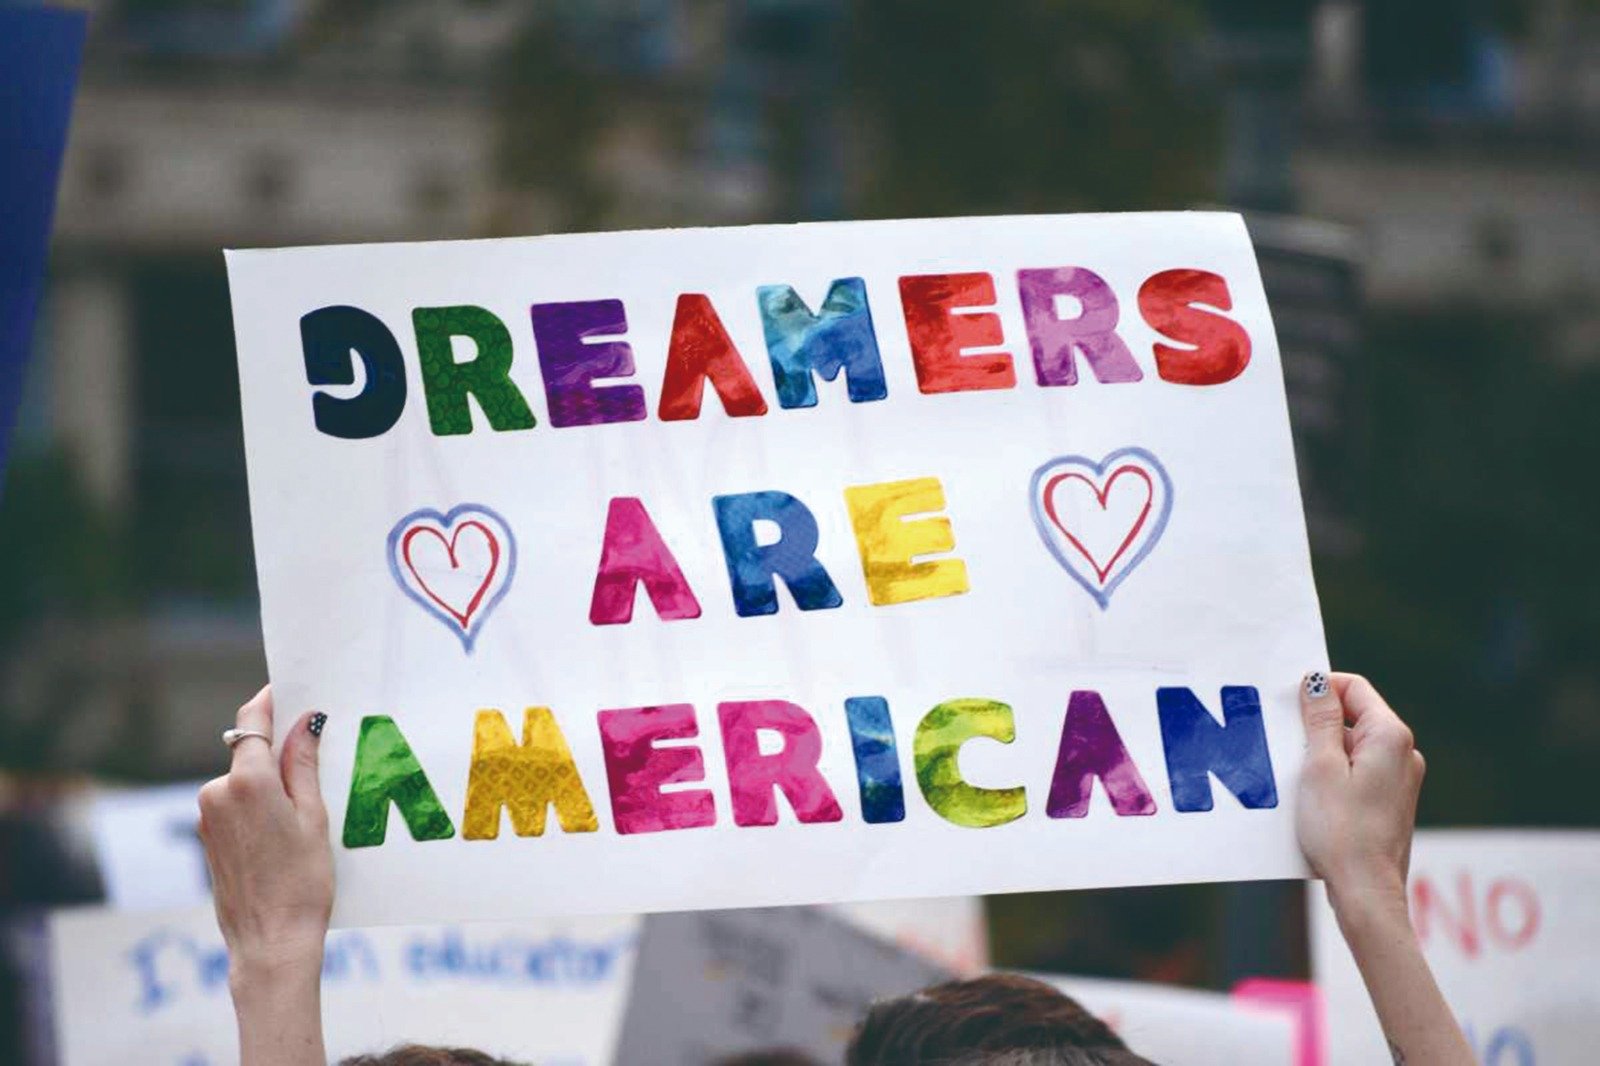 DREAMERS
ARE
AMERICAN
I'm an educator
NO
NO